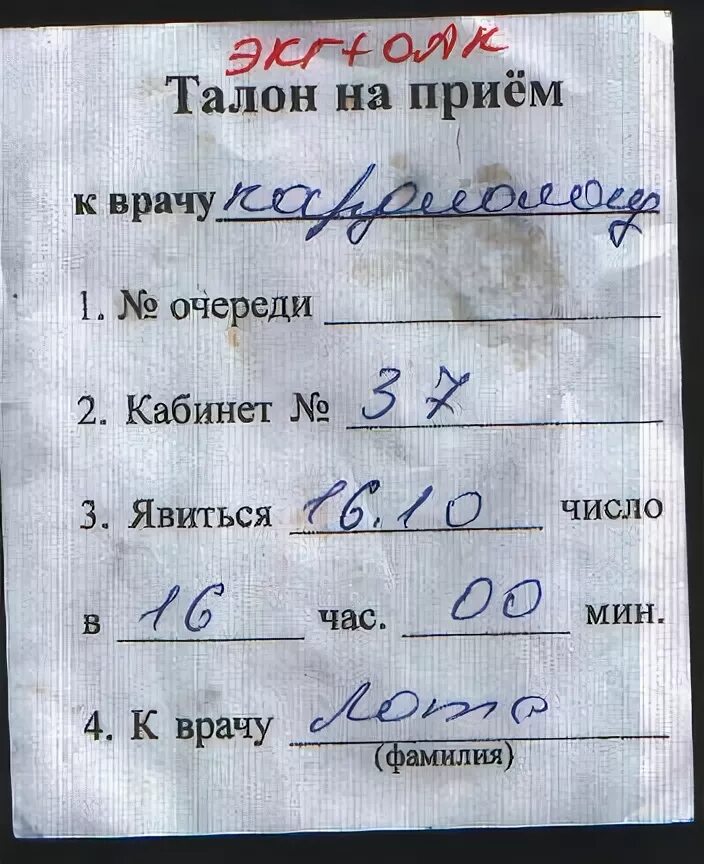 ЭКГ+ОАК
Талон на приём
к врачу кардиологу
1. № очереди
2. Кабинет № 37
3. Явиться 16.10 число
в 16 час. 00 мин.
4. К врачу
(фамилия)